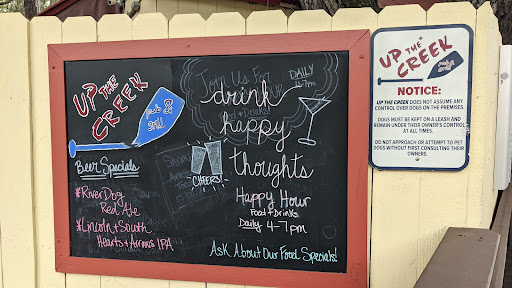 UP THE
CREEK
pub &
grill
Beer Specials
*RiverDog
Red Ale
*Lincoln & South
Hearts & Arrows IPA
Join Us For
DAILY
4-7pm
drink
Food & Drinks!
happy
thoughts
CHEERS!
Happy Hour
Food & Drinks
Daily 4-7pm
Ask About Our Food Specials!
UP THE
CREEK
NOTICE:
UP THE CREEK DOES NOT ASSUME ANY
CONTROL OVER DOGS ON THE PREMISES.
DOGS MUST BE KEPT ON A LEASH AND
REMAIN UNDER THEIR OWNER'S CONTROL
AT ALL TIMES.
DO NOT APPROACH OR ATTEMPT TO PET
DOGS WITHOUT FIRST CONSULTING THEIR
OWNERS.